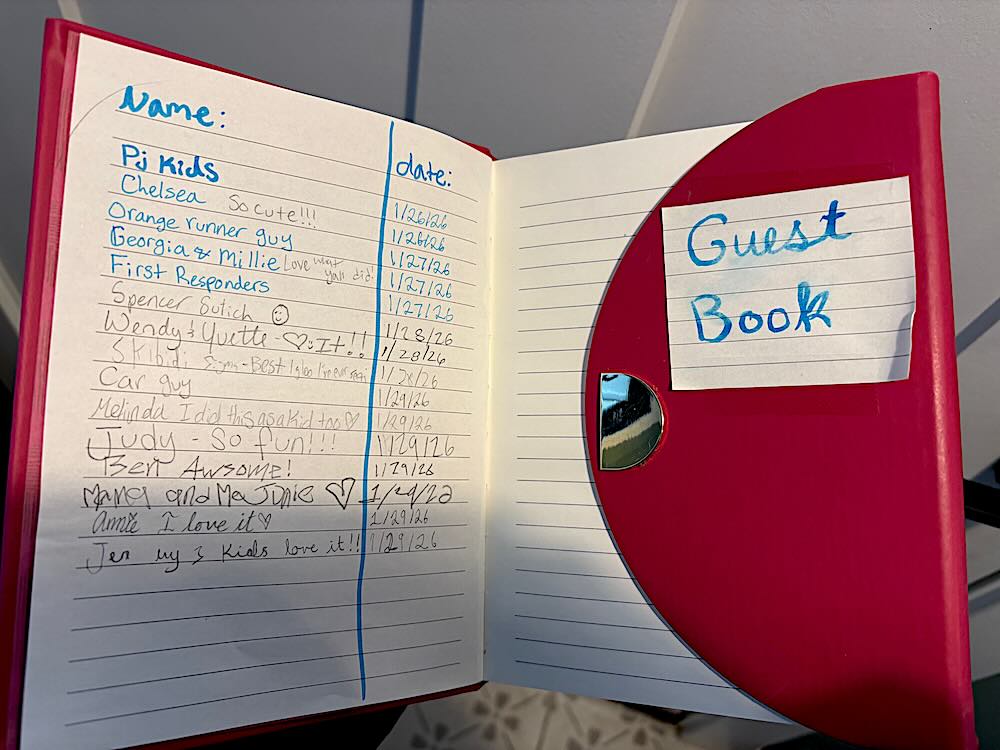 Name: date:
PJ Kids
Chelsea So cute!!! 1/26/26
Orange runner guy 1/26/26
Georgia & Millie Love what yall did! 1/27/26
First Responders 1/27/26
Spencer Sutich ☺ 1/27/26
Wendy & Yvette - ♡'s It!! 1/28/26
Skibidi Sigma - Best Igloo I've ever seen 1/28/26
Car guy 1/29/26
Melinda I did this as a kid too ♡ 1/29/26
Judy - So fun!!! 1/29/26
Ben Awsome! 1/29/26
Mama and Me Junie ♡ 1/29/26
Annie I love it ♡ 1/29/26
Jen my 3 kids love it!! 1/29/26
Guest
Book